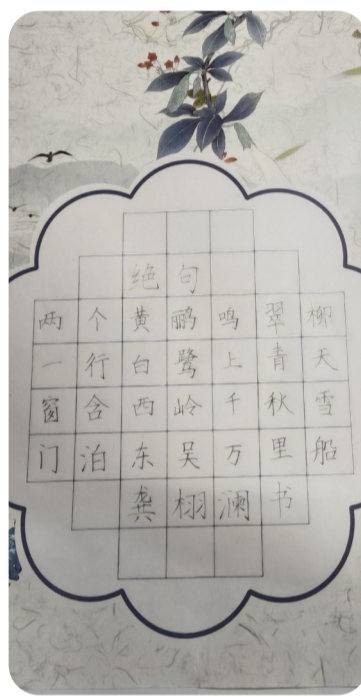 绝句
两个黄鹂鸣翠柳
一行白鹭上青天
窗含西岭千秋雪
门泊东吴万里船
龚栩澜书